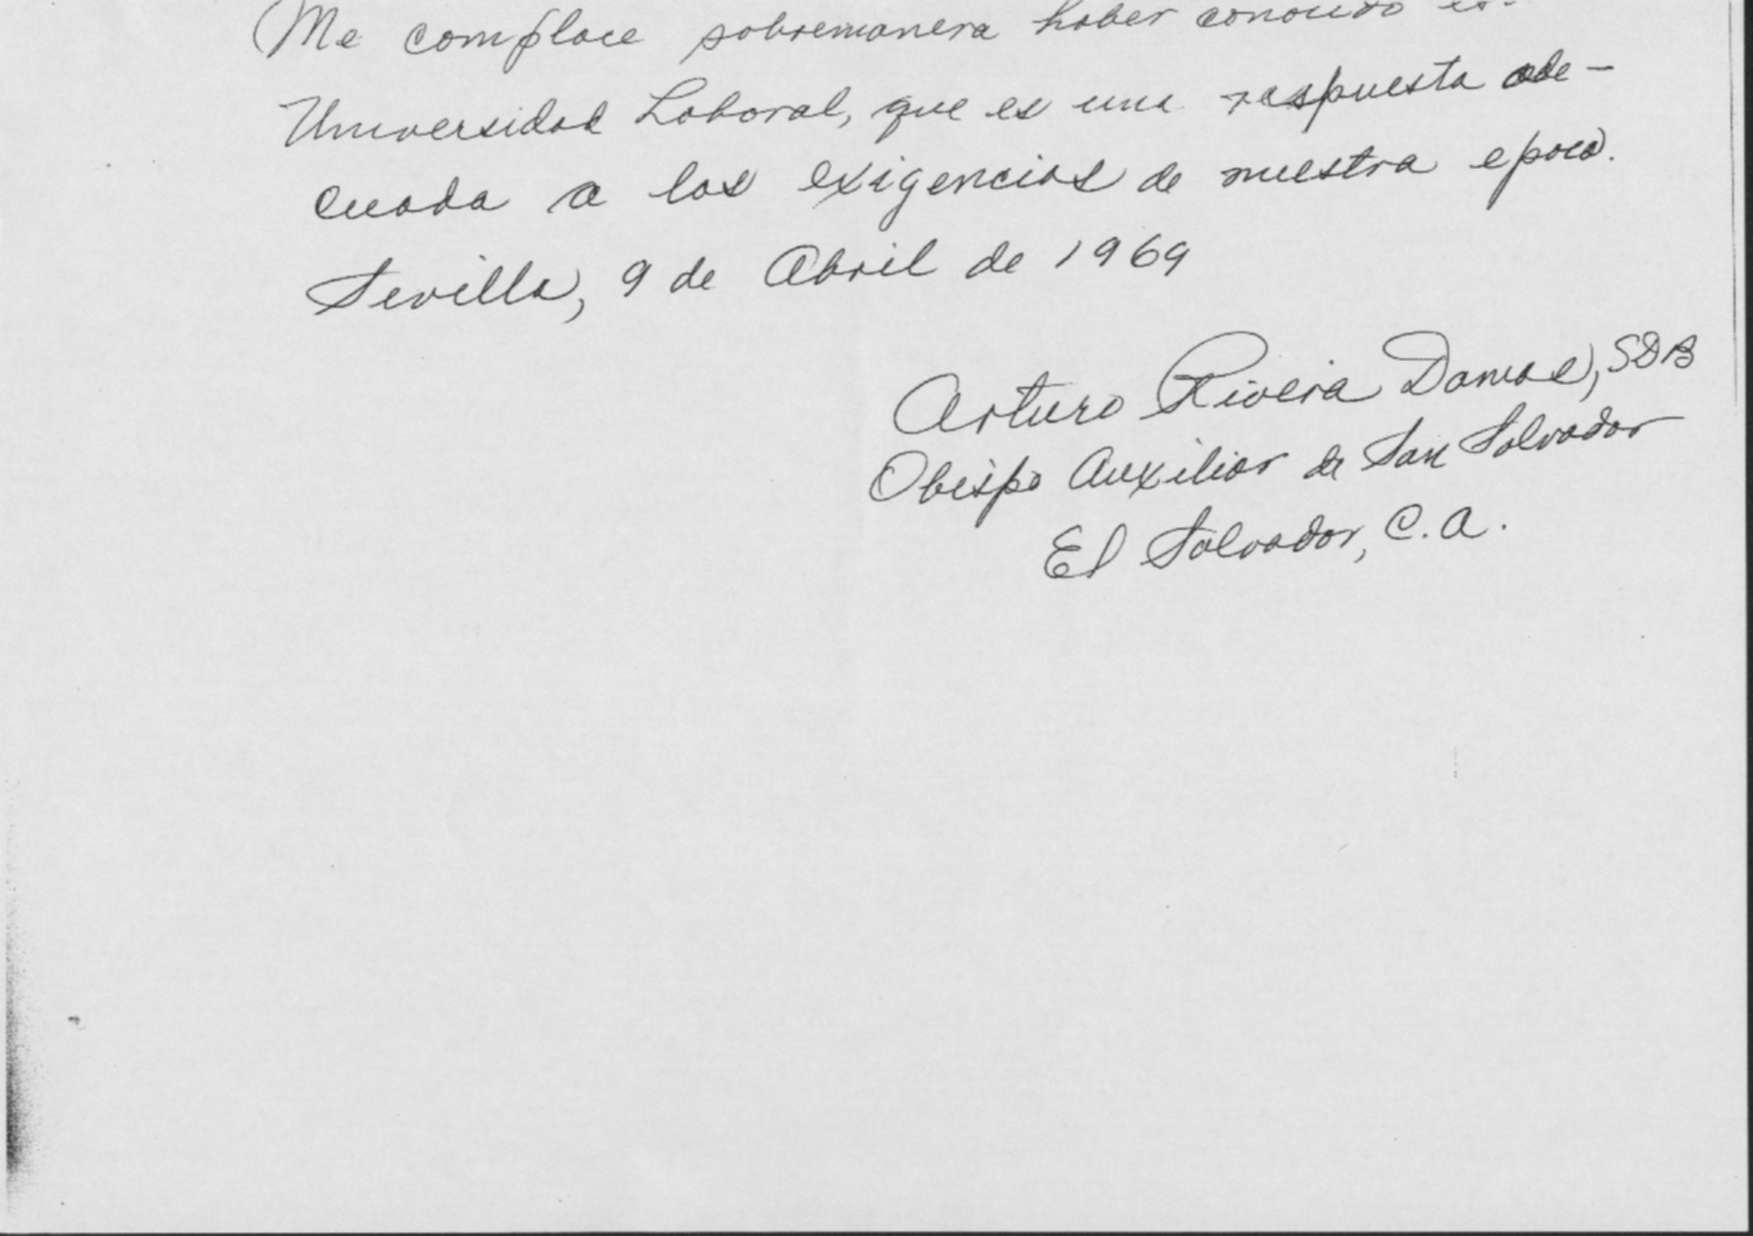 Me complace sobremanera haber conocido es-
Universidad Laboral, que es una respuesta ade-
cuada a las exigencias de nuestra epoca.
Sevilla, 9 de Abril de 1969
Arturo Rivera Damas, SDB
Obispo Auxiliar de San Salvador
El Salvador, C.A.